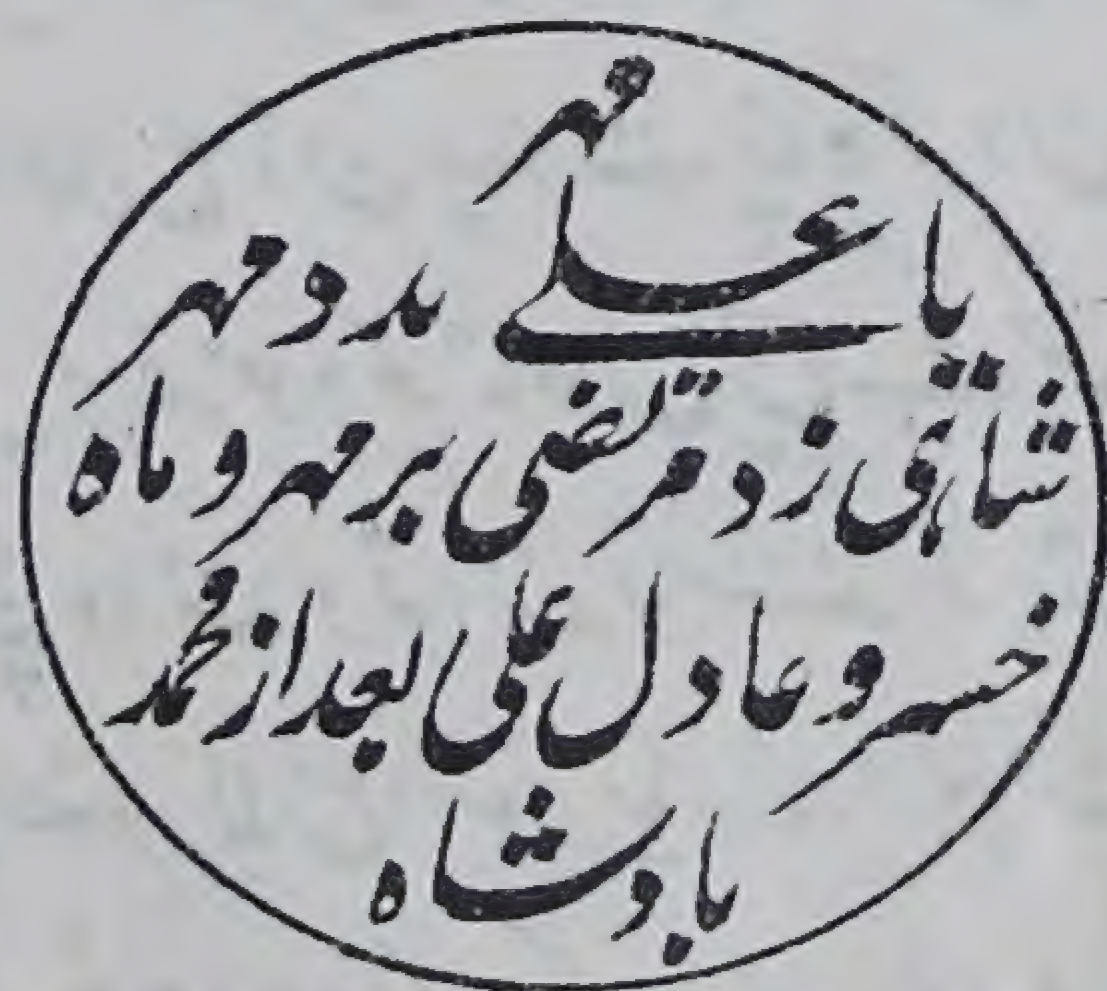 مہر
یا علی مدد مہر
شاہی زد مرتضی بر مہر و ماہ
خسرو عادل علی بعد از محمد
بادشاہ